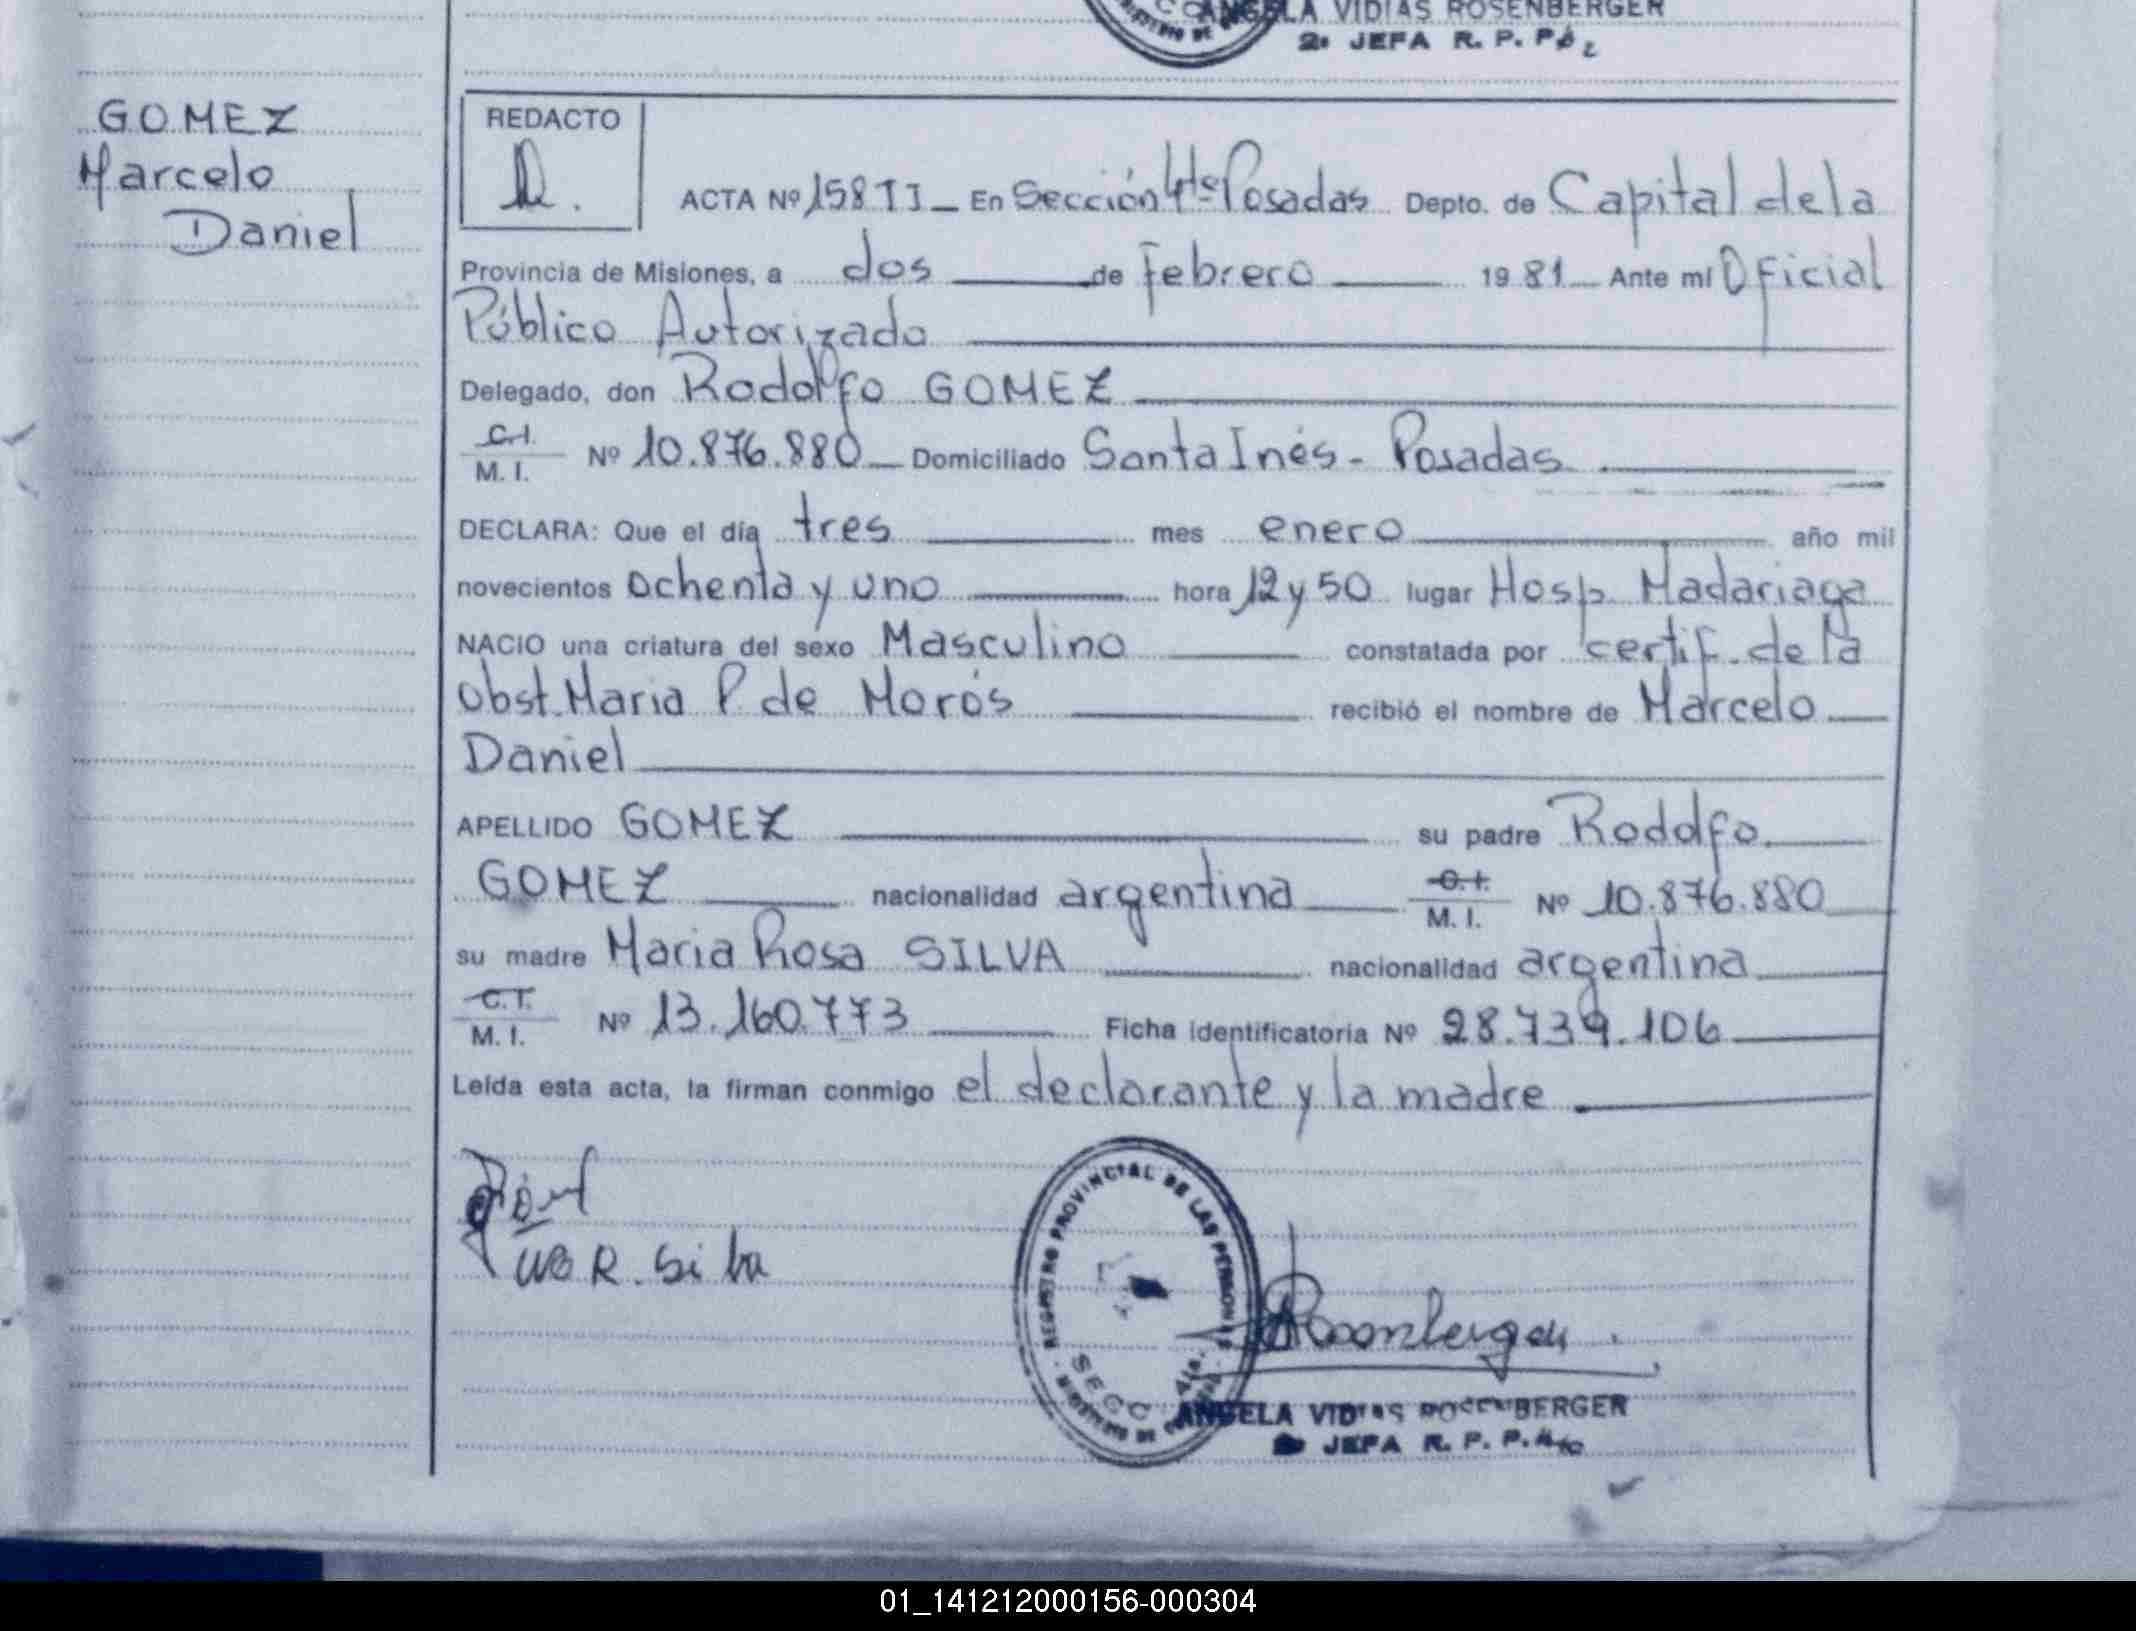 ANGELA VIDIAS ROSENBERGER
2a JEFA R. P. P.
GOMEZ
Marcelo
Daniel
REDACTO
ACTA Nº 158 TI En Sección 4ta Posadas Depto. de Capital de la
Provincia de Misiones, a dos de febrero 1981 Ante mí Oficial
Público Autorizado
Delegado, don Rodolfo GOMEZ
C.I.
M. I. Nº 10.876.880 Domiciliado Santa Inés - Posadas
DECLARA: Que el día tres mes enero año mil
novecientos ochenta y uno hora 12 y 50 lugar Hosp. Madariaga
NACIO una criatura del sexo Masculino constatada por certif. de la
Obst. Maria P. de Morós recibió el nombre de Marcelo
Daniel
APELLIDO GOMEZ su padre Rodolfo
GOMEZ nacionalidad argentina C.I. M. I. Nº 10.876.880
su madre Maria Rosa SILVA nacionalidad argentina
C.I.
M. I. Nº 13.160.773 Ficha Identificatoria Nº 28.739.106
Leída esta acta, la firman conmigo el declarante y la madre
R. Silva
REGISTRO PROVINCIAL DE LAS PERSONAS
SECC. 4ta.
MINISTERIO DE
Rosenberger
ANGELA VIDIAS ROSENBERGER
JEFA R. P. P.
01_141212000156-000304